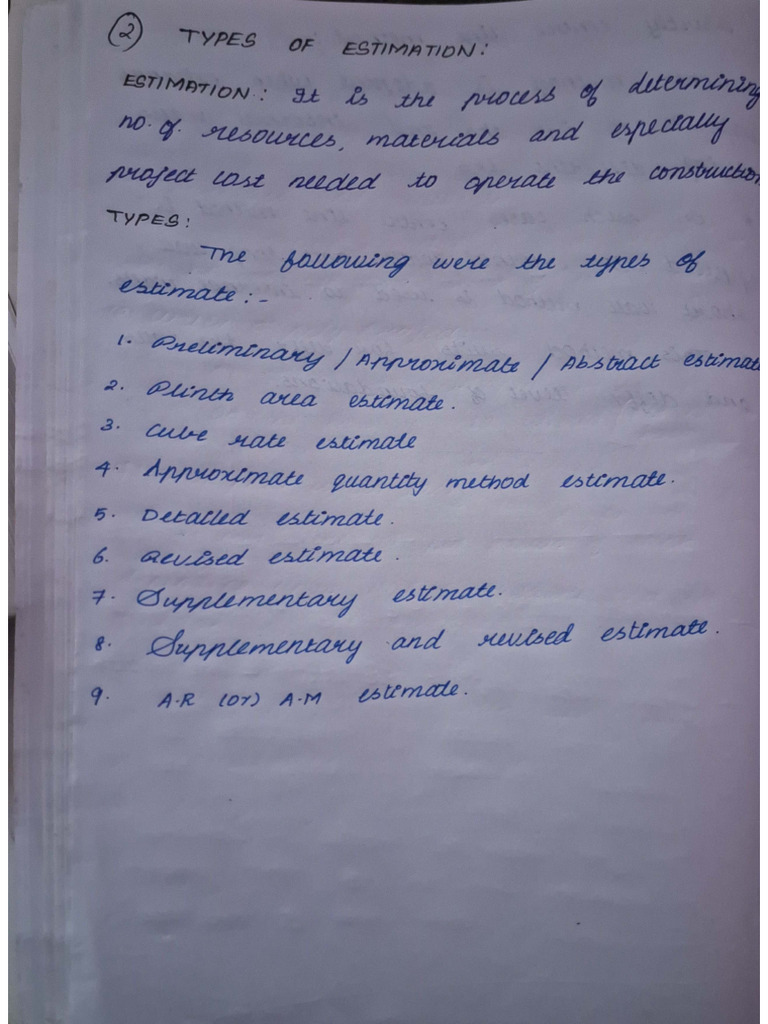 2 TYPES OF ESTIMATION:
ESTIMATION: It is the process of determining
no. of. resources, materials and especially
project cost needed to operate the construction
TYPES:
The following were the types of
estimate:-
1. Preliminary / Approximate / Abstract estimate
2. Plinth area estimate.
3. Cube rate estimate
4. Approximate quantity method estimate.
5. Detailed estimate.
6. Revised estimate.
7. Supplementary estimate.
8. Supplementary and revised estimate.
9. A.R (or) A.M estimate.